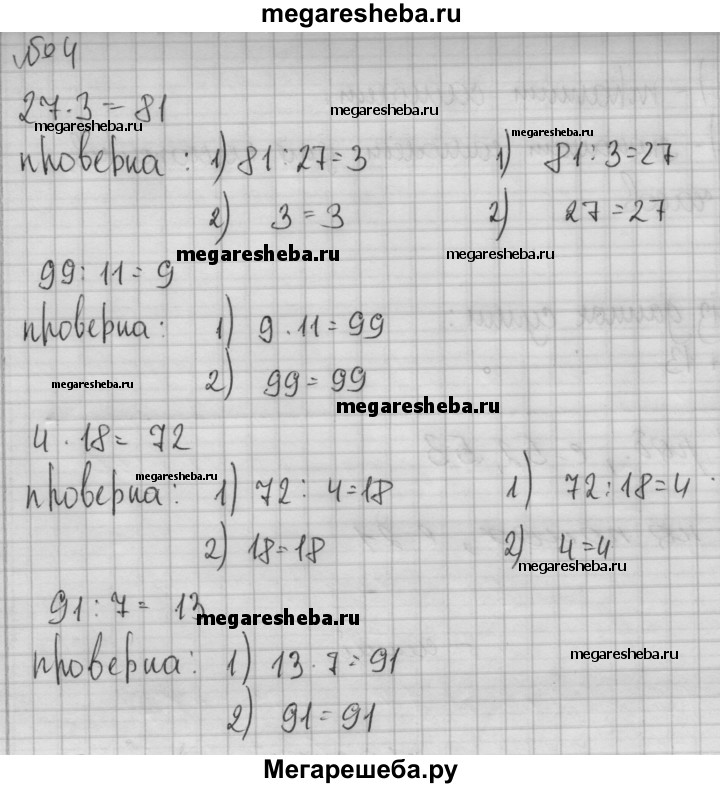 megaresheba.ru
№ 4
27·3=81
megaresheba.ru
megaresheba.ru
проверка: 1) 81:27=3 1) 81:3=27
megaresheba.ru
2) 3=3 2) 27=27
megaresheba.ru megaresheba.ru
99:11=9
проверка: 1) 9·11=99
megaresheba.ru 2) 99=99
megaresheba.ru
4·18=72
megaresheba.ru
проверка: 1) 72:4=18 1) 72:18=4
2) 18=18 2) 4=4
megaresheba.ru
91:7=13
megaresheba.ru
проверка: 1) 13·7=91
megaresheba.ru
2) 91=91
Мегарешеба.ру